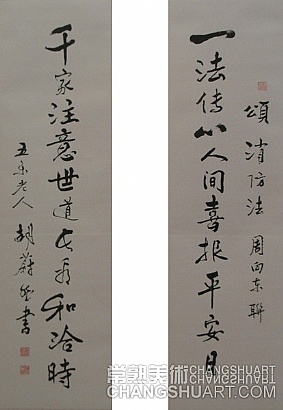 頌消防法 周向东聯
一法传心人间喜报平安月
千家注意世道长和洽時
老人 胡蔚书
常熟美術 CHANGSHUART
CHANGSHUART.COM